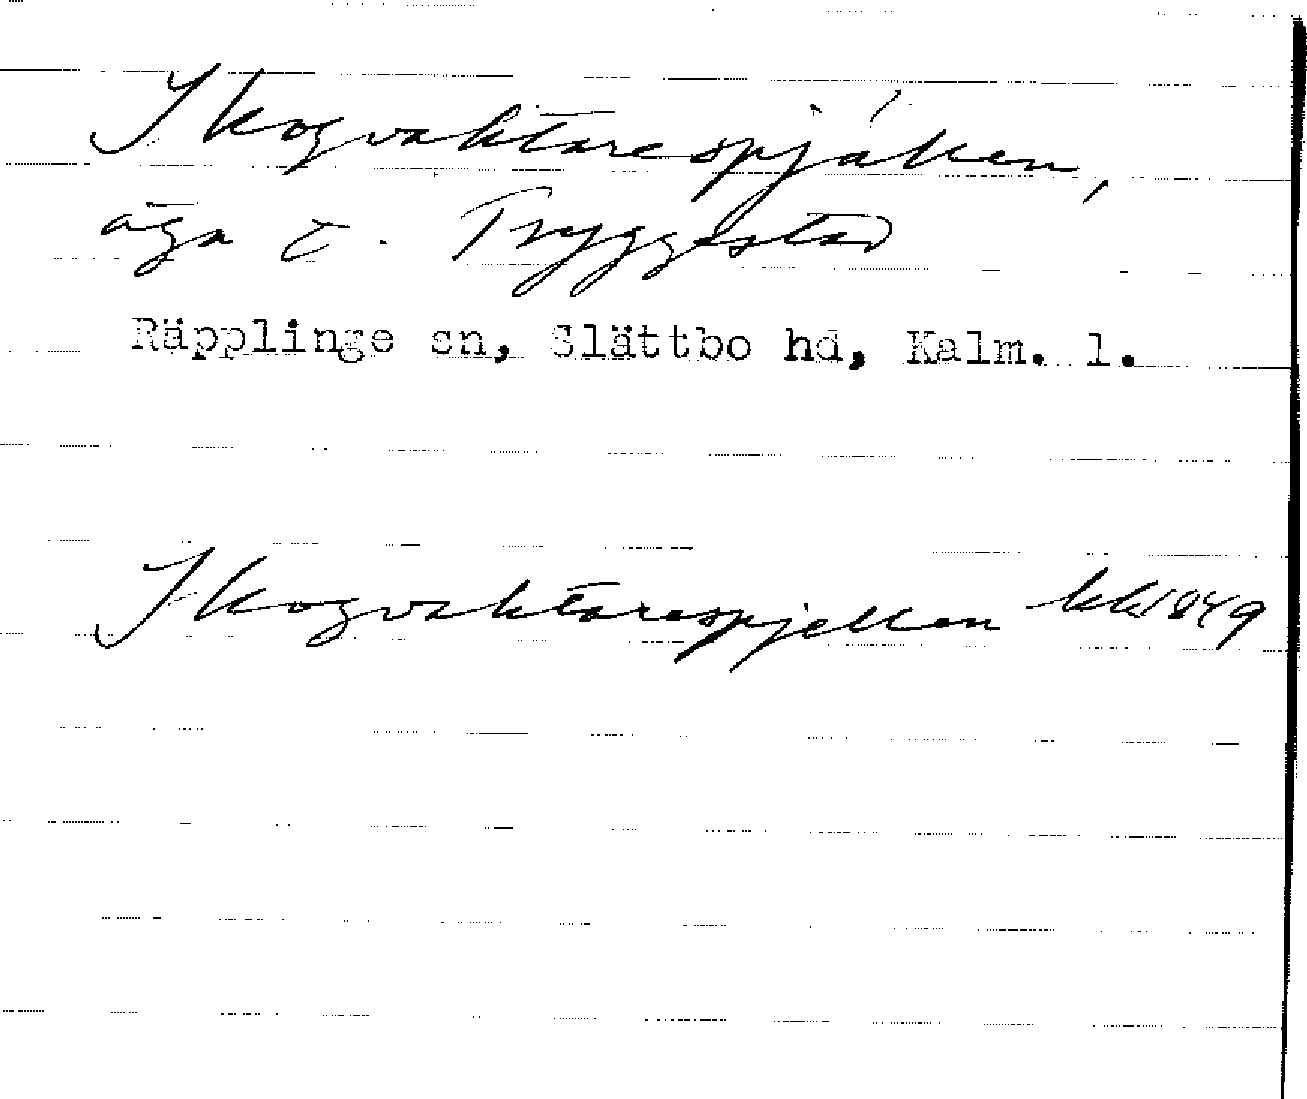 Skogvaktarespjället,
äga t. Tryggestad
Räpplinge sn, Slättbo hd, Kalm. l.
Skogvaktarespjellen kk1849